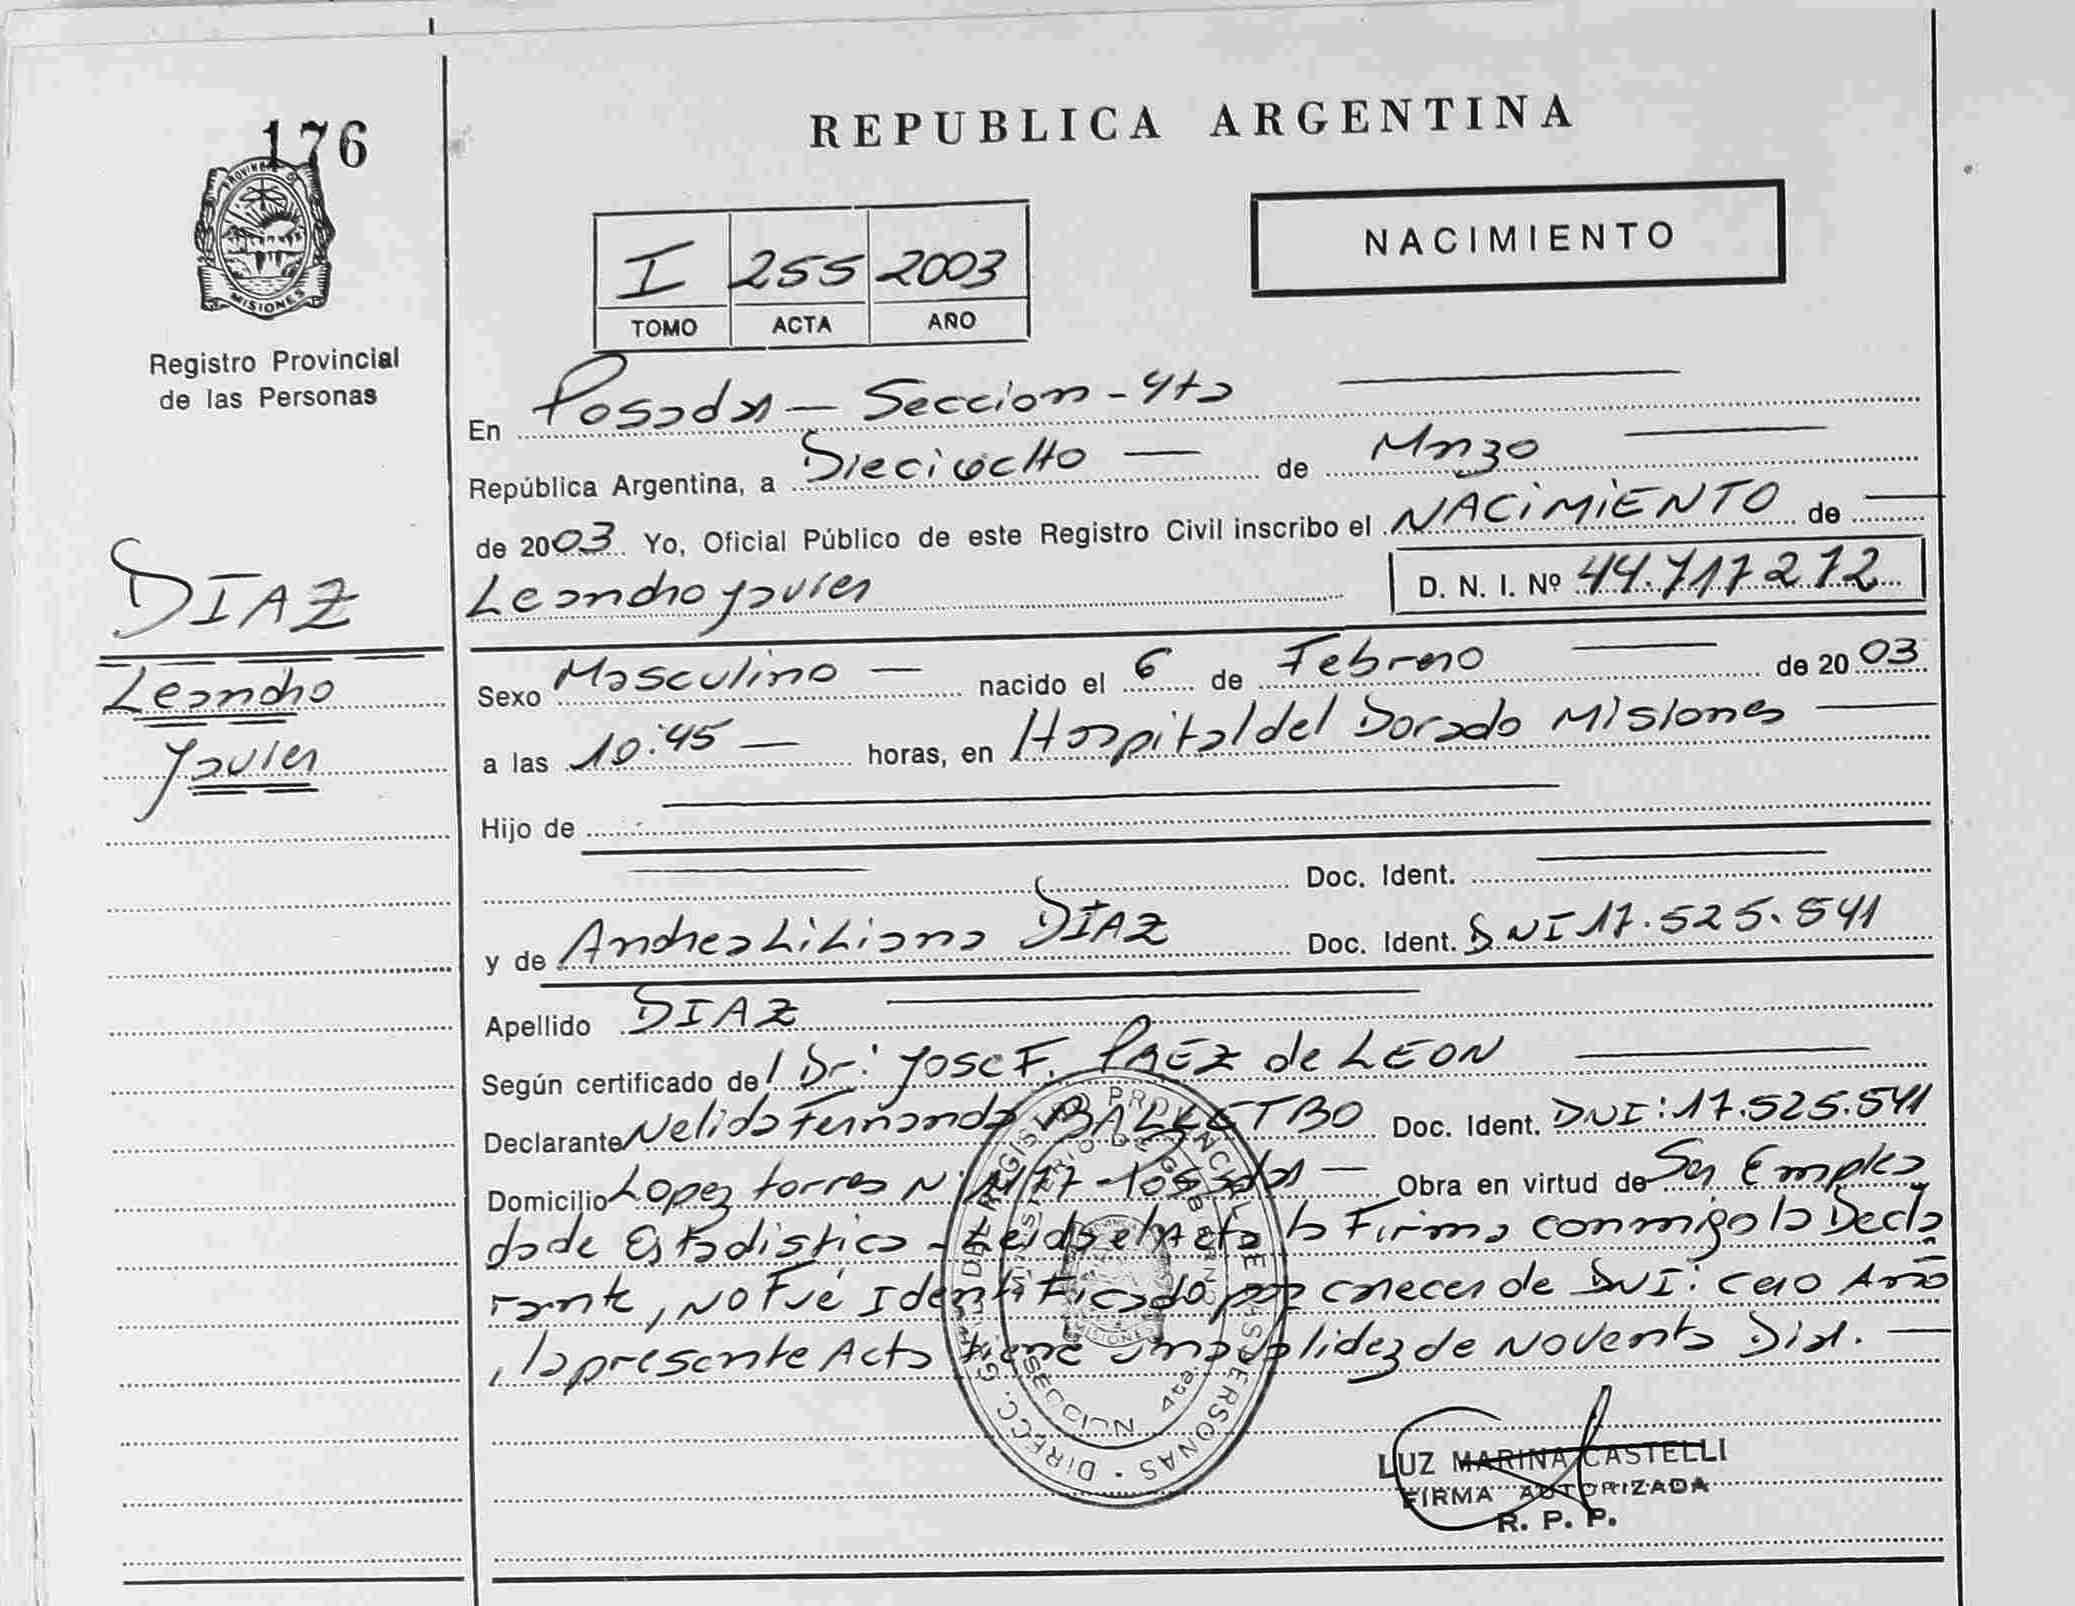 176
PROVINCIA DE
MISIONES
Registro Provincial
de las Personas
DIAZ
Leandro
Javier
REPUBLICA ARGENTINA
I 255 2003
TOMO ACTA AÑO
NACIMIENTO
En Posadas — Seccion - 4ta
República Argentina, a Dieciocho — de Marzo
de 2003 Yo, Oficial Público de este Registro Civil inscribo el NACIMIENTO de
Leandro Javier D. N. I. Nº 44.717272
Sexo Masculino — nacido el 6 de Febrero de 2003
a las 10:45 — horas, en Hospital del Dorado Misiones
Hijo de
Doc. Ident.
y de Andrea Liliana DIAZ Doc. Ident. DNI 17.525.541
Apellido DIAZ
Según certificado del Dr: Jose F. PAEZ de LEON
Declarante Nelida Fernanda BALLETBO Doc. Ident. DNI: 17.525.541
Domicilio Lopez torres Posadas — Obra en virtud de Ser Emplea
da de Estadistica - Leida el Acta la Firma conmigo la Decla
rante, NO Fué Identificado por carecer de DNI: cero Año
, la presente Acta tiene una validez de Noventa Dias.
DIRECC. GRAL. DEL REGISTRO PROVINCIAL DE LAS PERSONAS
MINISTERIO DE GOBIERNO
MISIONES
SECCION 4ta.
LUZ MARINA CASTELLI
FIRMA AUTORIZADA
R. P. P.